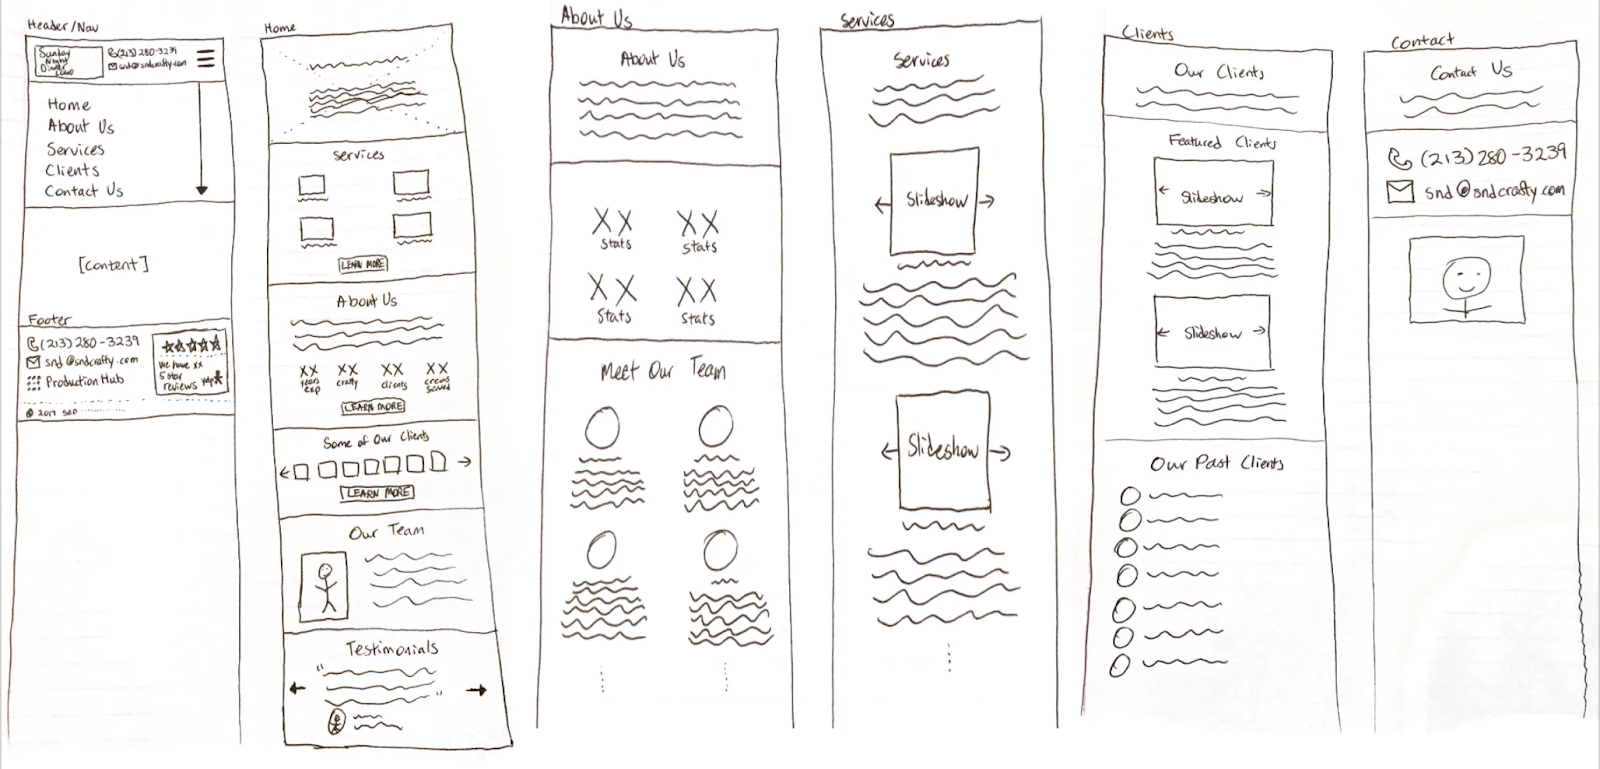 Header/Nav
Sunday
Night
Dinner
Logo
(213) 280-3239
snd@sndcrafty.com
Home
About Us
Services
Clients
Contact Us
[Content]
Footer
(213) 280-3239
snd@sndcrafty.com
Production Hub
We have xx
5 star
reviews yelp
© 2017 SND
Home
Services
LEARN MORE
About Us
XX XX XX XX
years exp crafty clients crews served
LEARN MORE
Some of Our Clients
LEARN MORE
Our Team
Testimonials
"
"
About Us
About Us
XX XX
Stats Stats
XX XX
Stats Stats
Meet Our Team
Services
Services
Slideshow
Slideshow
Clients
Our Clients
Featured Clients
Slideshow
Slideshow
Our Past Clients
Contact
Contact Us
(213) 280-3239
snd@sndcrafty.com